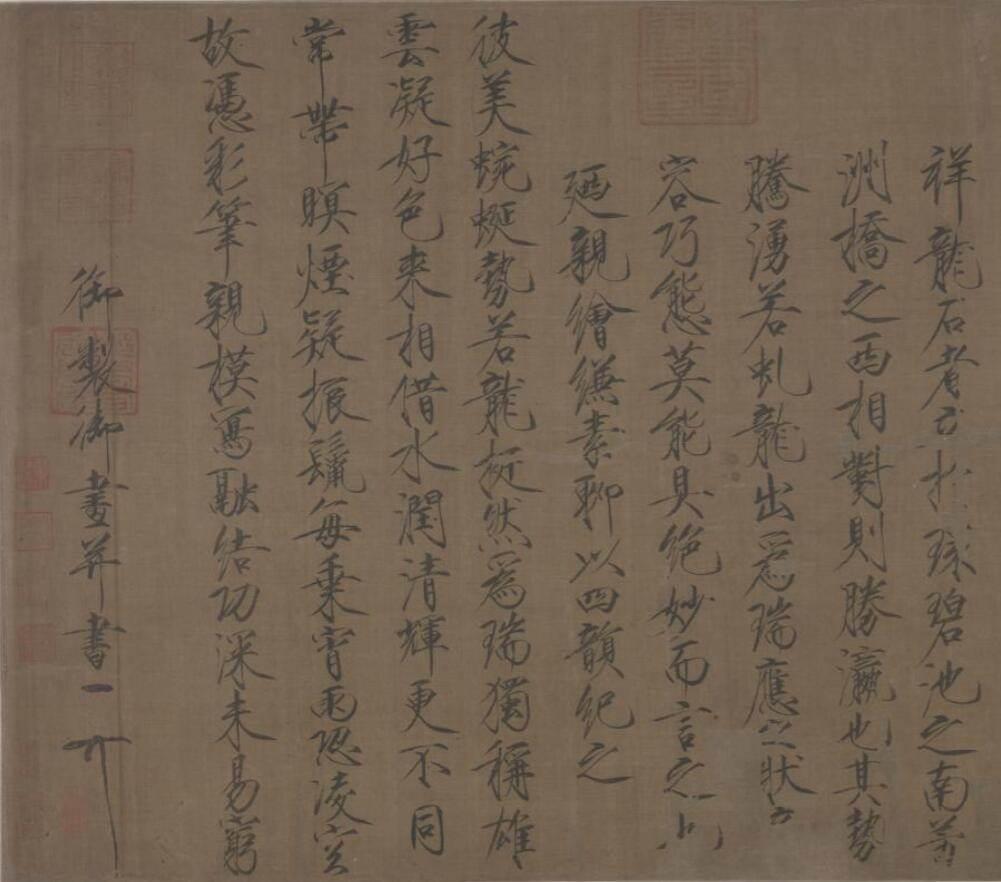 祥龍石者環碧池之南芳
洲橋之西相對則勝瀛也其勢
騰湧若虬龍出爲瑞應之狀
容巧態莫能具絕妙而言之
廼親繪縑素聊以四韻紀之
彼美蜿蜒勢若龍挺然爲瑞獨稱雄
雲凝好色來相借水潤清輝更不同
常帶暝煙疑振鬣每乘宵雨恐凌空
故憑彩筆親模寫融結功深未易窮
御製御畫并書